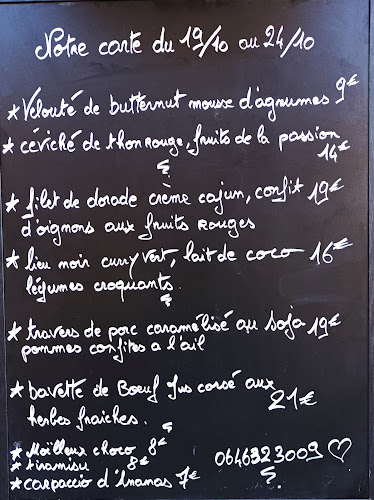 Notre carte du 19/10 au 24/10
★ Velouté de butternut mousse d'agrumes 9€
★ céviché de thon rouge, fruits de la passion
14€
★ filet de dorade crème cajun, confit 19€
d'oignons aux fruits rouges
★ lieu noir curry vert, lait de coco 16€
légumes croquants.
★ travers de porc caramélisé au soja 19€
pommes confites a l'ail
★ bavette de Boeuf jus corsé aux
21€
herbes fraiches.
★ Moïlleux choco 8€
★ tiramisu 8€
0646323009 ♡
★ carpaccio d'Ananas 7€